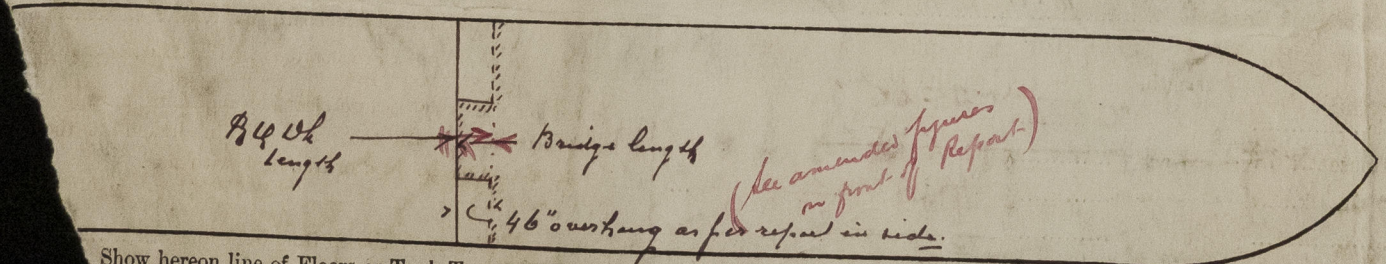 R Q Dk
length
Bridge length
(See amended figures
on front of Report)
46" overhang as per report in side.
Show hereon line of Floors or Tank